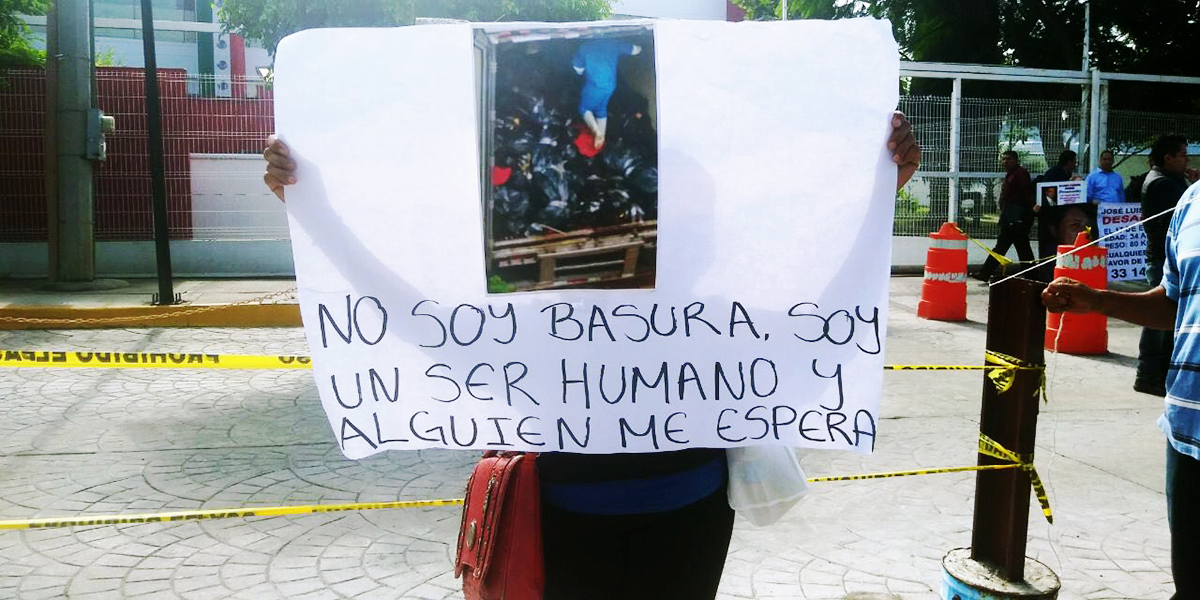 NO SOY BASURA. SOY
UN SER HUMANO Y
ALGUIEN ME ESPERA
PROHIBIDO EL PAS
JOSÉ LUIS
DESA
EDAD: 34 A
PESO: 80 K
CUALQUIE
AVOR DE
33 14